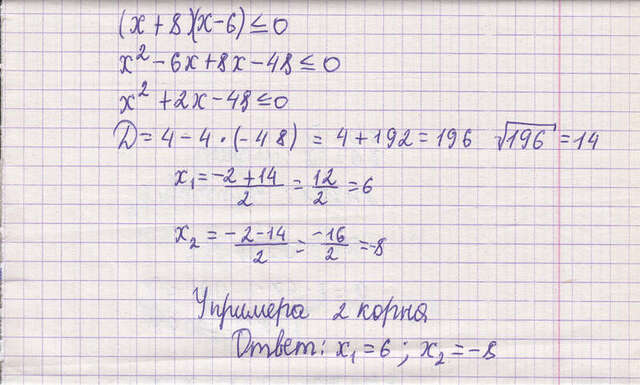 (x+8)(x-6)≤0
x²-6x+8x-48≤0
x²+2x-48≤0
D=4-4·(-48) = 4+192=196 √196=14
x₁=-2+14/2=12/2=6
x₂=-2-14/2=-16/2=-8
У примера 2 корня
Ответ: x₁=6; x₂=-8